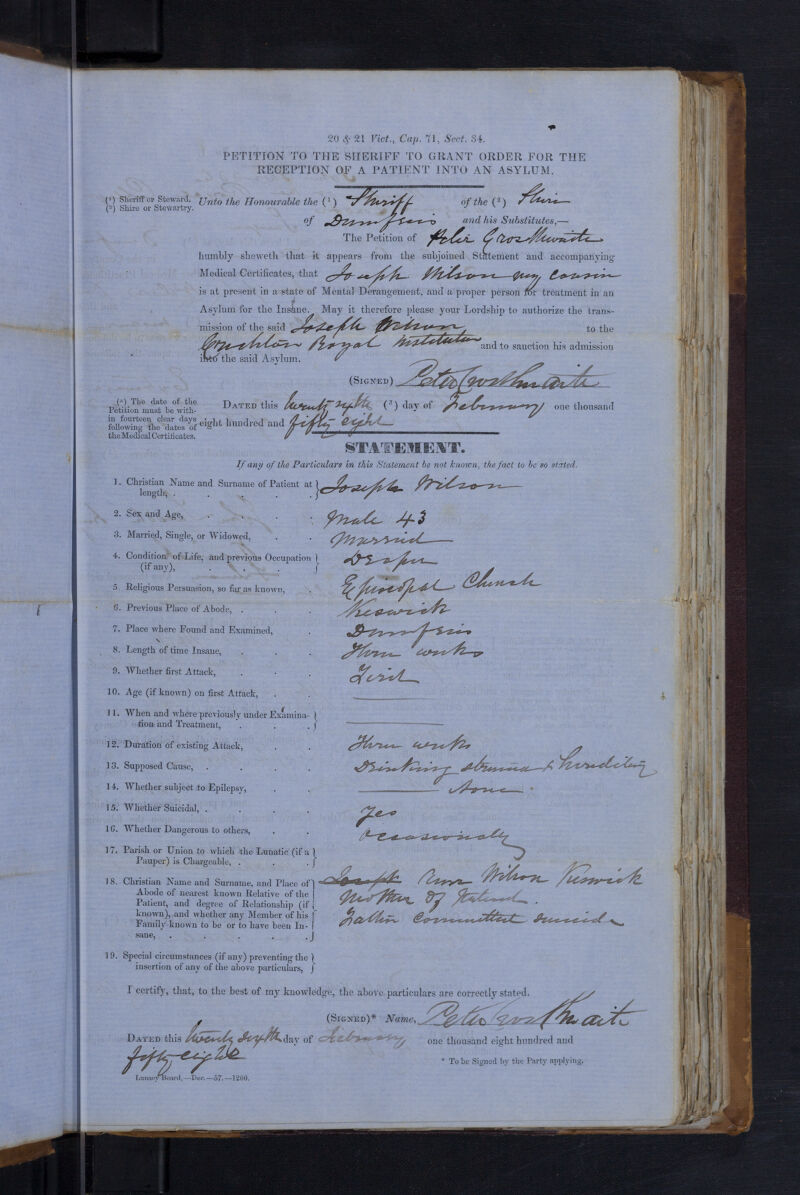 20 & 21 Vict., Cap. 71, Sect. 34.
PETITION TO THE SHERIFF TO GRANT ORDER FOR THE
RECEPTION OF A PATIENT INTO AN ASYLUM.
(¹) Sheriff or Steward.
(²) Shire or Stewartry.
Unto the Honourable the (¹) Sheriff of the (²) Shire
of Dumfries and his Substitutes,—
The Petition of Peter Crosthwaite
humbly sheweth that it appears from the subjoined Statement and accompanying
Medical Certificates, that Joseph Wilson my cousin
is at present in a state of Mental Derangement, and a proper person for treatment in an
Asylum for the Insane. May it therefore please your Lordship to authorize the trans-
mission of the said Joseph Wilson to the
Crichton Royal Institution and to sanction his admission
into the said Asylum.
(SIGNED) Peter Crosthwaite
(³) The date of the
Petition must be with-
in fourteen clear days
following the dates of
the Medical Certificates.
DATED this twenty sixth (³) day of February one thousand
eight hundred and fifty eight
STATEMENT.
If any of the Particulars in this Statement be not known, the fact to be so stated.
1. Christian Name and Surname of Patient at
length, . Joseph Wilson
2. Sex and Age, Male 43
3. Married, Single, or Widowed, Married
4. Condition of Life, and previous Occupation
(if any), Draper
5 Religious Persuasion, so far as known, Episcopal Church
6. Previous Place of Abode, . Keswick
7. Place where Found and Examined, Dumfries
8. Length of time Insane, Three weeks
9. Whether first Attack, First
10. Age (if known) on first Attack,
11. When and where previously under Examina-
tion and Treatment,
12. Duration of existing Attack, Three weeks
13. Supposed Cause, . Drinking & hereditary
14. Whether subject to Epilepsy, None
15. Whether Suicidal, . Yes
16. Whether Dangerous to others, occasionally
17. Parish or Union to which the Lunatic (if a
Pauper) is Chargeable, .
18. Christian Name and Surname, and Place of
Abode of nearest known Relative of the
Patient, and degree of Relationship (if
known), and whether any Member of his
Family known to be or to have been In-
sane, .
Joseph Ann Wilson Keswick
Mother of Patient.
Father committed suicide
19. Special circumstances (if any) preventing the
insertion of any of the above particulars,
I certify, that, to the best of my knowledge, the above particulars are correctly stated.
(SIGNED)* Name, Peter Crosthwaite
DATED this twenty sixth day of February one thousand eight hundred and
fifty eight
* To be Signed by the Party applying.
Lunacy Board,—Dec.—57.—1200.